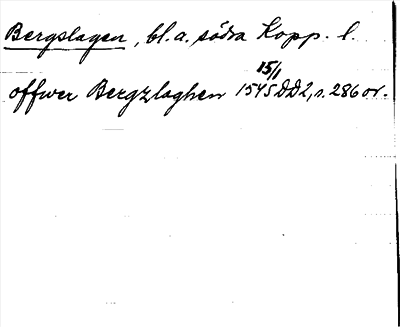 Bergslagen, bl.a. södra Kopp. l.
15/1
offwer Bergzlaghen 1545 DD2, s. 286 or.